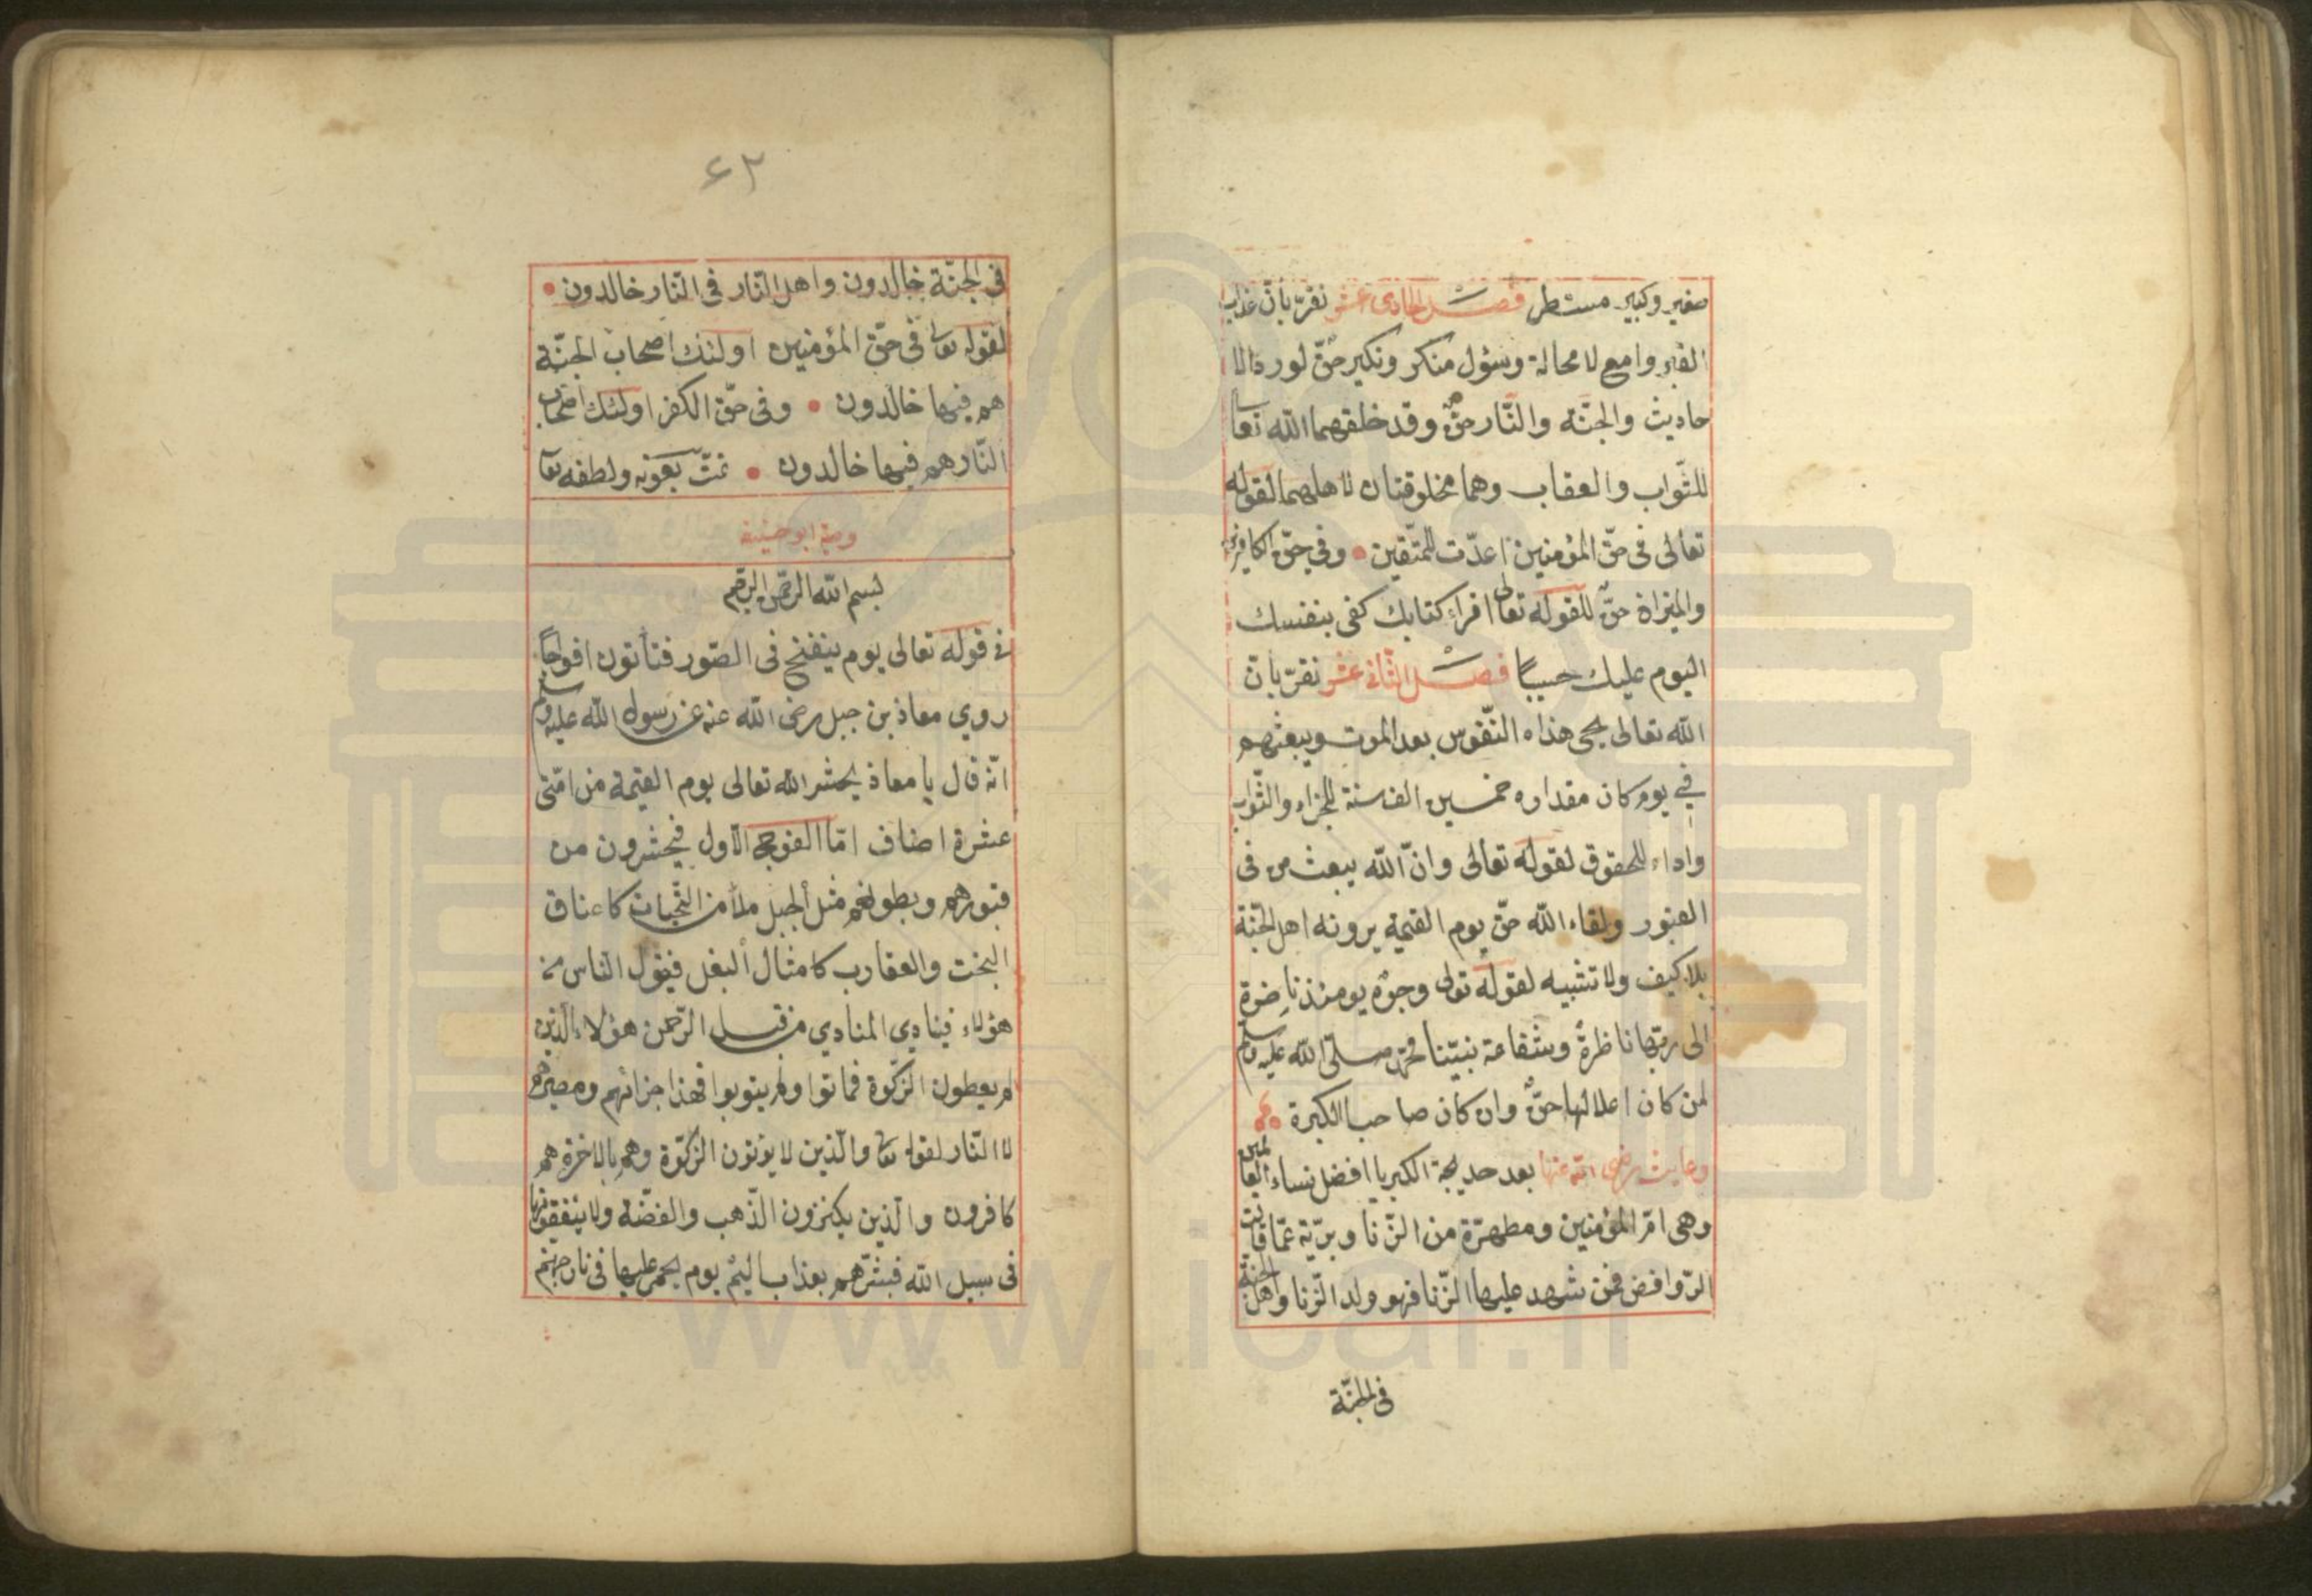 صغير وكبير مستطر فصل الحادى عشر نقرّ بانّ عذاب
القبر وامع لا محالة وسؤل منكر ونكير حقّ لورد الا
حاديث والجنّة والنّار حقٌّ وقد خلقهما الله تعا
للثّواب والعقاب وهما مخلوقتان لاهلهما لقوله
تعالى فى حقّ المؤمنين اعدّت للمتّقين • وفى حقّ الكافرين
والميزان حقٌّ للقوله تعالى اقراء كتابك كفى بنفسك
اليوم عليك حسيبًا فصل الثّانى عشر نقرّ بانّ
الله تعالى يحى هذاه النّفوس بعد الموت ويبعثهم
في يوم كان مقداره خمسين الف سنة للجزاء والثّواب
واداء للحقوق لقوله تعالى وانّ الله يبعث من فى
القبور ولقاء الله حقّ يوم القيمة يرونه اهل الجنّة
بلا كيف ولا تشبيه لقوله تعالى وجوهٌ يومئذ ناضرة
الى ربّها ناظرةٌ وشفاعة نبيّنا محمّد صلّى الله عليه وسلم
لمن كان اعلالها حقٌّ وان كان صاحب الكبيرة
وعايشه رضى الله عنها بعد حديجة الكبريا افضل نساء العالمين
وهى امّ المؤمنين ومطهّرة من الزّنا وبريّة عمّا قالت
الرّوافض فمن شهد عليها الزّنا فهو ولد الزّنا واهل الجنة
فى الجنّة
٤٢
فى الجنّة خالدون واهل النّار فى النّار خالدون •
لقوله تعالى فى حقّ المؤمنين اولئك اصحاب الجنّة
هم فيها خالدون • وفى حقّ الكفر اولئك اصحاب
النّار هم فيها خالدون • تمّت بعونه ولطفه تعا
وصية ابو حنيفه
بسم الله الرحمن الرحيم
فى قوله تعالى يوم ينفخ فى الصّور فتأتون افواجًا
روي معاذ بن جبل رضى الله عنه عن رسول الله عليه وسلم
انّه قال يا معاذ يحشر الله تعالى يوم القيمة من امّتى
عشرة اصناف امّا الفوج الاول فيحشرون من
قبورهم وبطونهم مثل الجبل ملأ من الحيات كاعناق
البخت والعقارب كامثال البغل فيقول الناس من
هؤلاء فينادي المنادي من قبل الرّحمن هؤلاء الّذين
لم يعطون الزكوة فماتوا ولم يتوبوا فهذا جزائهم ومصيرهم
لا النّار لقوله تعا والّذين لا يؤتون الزكوّة وهم بالاخرة هم
كافرون والّذين يكنزون الذّهب والفضّة ولا ينفقونها
فى سبيل الله فبشّرهم بعذاب اليمْ يوم يحمر عليها فى نار جهنّم
www.ical.ir